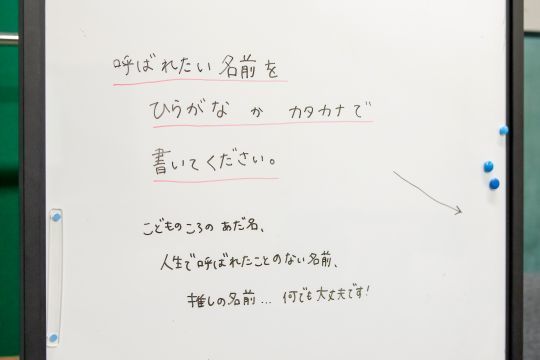 呼ばれたい名前を
ひらがな か カタカナで
書いてください。
こどものころの あだ名、
人生で呼ばれたことのない名前、
推しの名前... 何でも大丈夫です!